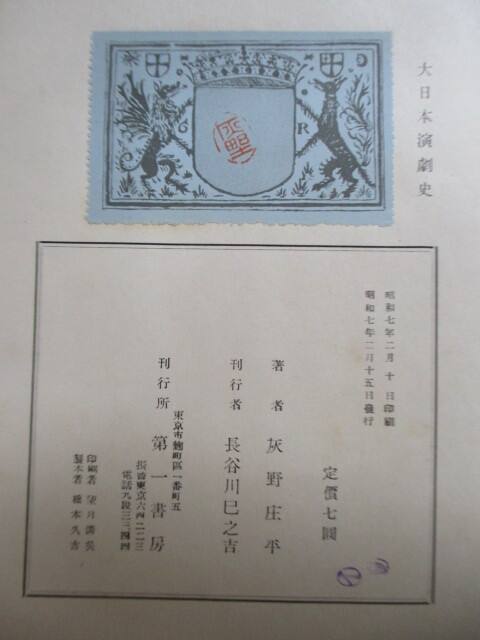 大日本演劇史
R
灰野
昭和七年二月十日印刷
昭和七年二月十五日發行
定價七圓
著者 灰野庄平
刊行者 長谷川巳之吉
東京市麹町區一番町五
刊行所 第一書房
振替東京六四二二三
電話九段三三四四
印刷者 望月
製本者 橋本久吉